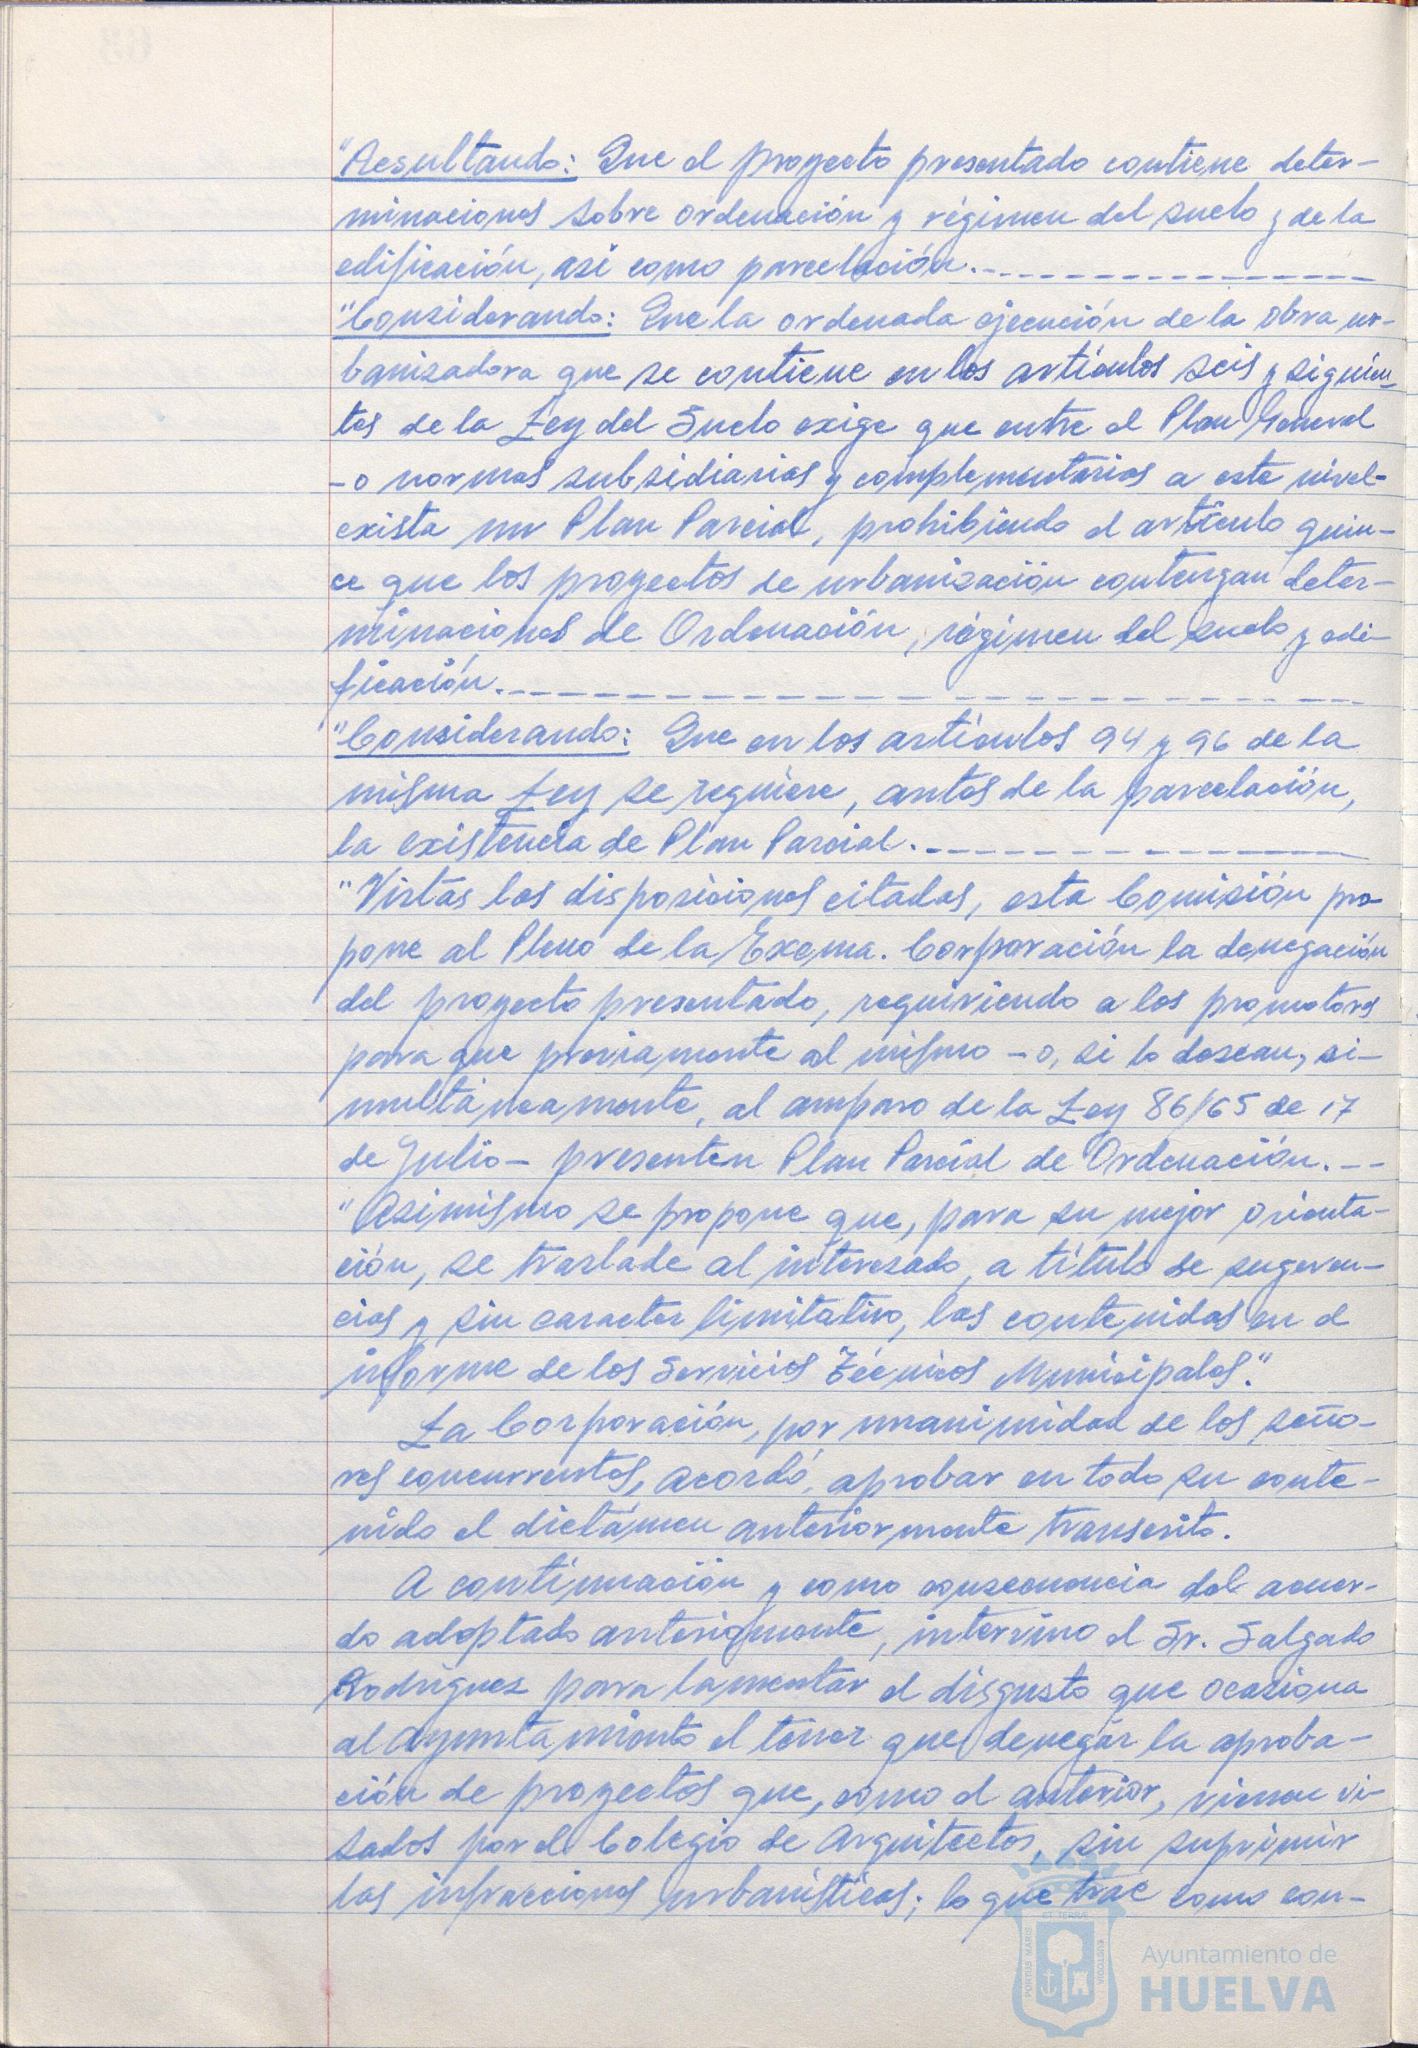 "Resultando: Que el proyecto presentado contiene deter-
minaciones sobre ordenación y régimen del suelo y de la
edificación, así como parcelación.
"Considerando: Que la ordenada ejecución de la obra ur-
banizadora que se contiene en los artículos seis y siguien-
tes de la Ley del Suelo exige que entre el Plan General
-o normas subsidiarias y complementarias a este nivel-
exista un Plan Parcial, prohibiendo el artículo quin-
ce que los proyectos de urbanización contengan deter-
minaciones de Ordenación, régimen del suelo y edi-
ficación.
"Considerando: Que en los artículos 94 y 96 de la
misma Ley se requiere, antes de la parcelación,
la existencia de Plan Parcial.
"Vistas las disposiciones citadas, esta Comisión pro-
pone al Pleno de la Excma. Corporación la denegación
del proyecto presentado, requiriendo a los promotores
para que previamente al mismo -o, si lo desean, si-
multáneamente, al amparo de la Ley 86/65 de 17
de Julio- presenten Plan Parcial de Ordenación.
"Asimismo se propone que, para su mejor orienta-
ción, se traslade al interesado, a título de sugeren-
cias y sin caracter limitativo, las contenidas en el
informe de los Servicios Técnicos Municipales."
La Corporación, por unanimidad de los seño-
res concurrentes, acordó, aprobar en todo su conte-
nido el dictámen anteriormente transcrito.
A continuación y como consecuencia del acuer-
do adoptado anteriormente, intervino el Sr. Salgado
Rodríguez para lamentar el disgusto que ocasiona
al Ayuntamiento el tener que denegar la aproba-
ción de proyectos que, como el anterior, vienen vi-
sados por el Colegio de Arquitectos, sin suprimir
las infracciones urbanísticas; lo que trae como con-
PORTUS MARIS
ET TERRAE
CUSTODIA
Ayuntamiento de
HUELVA